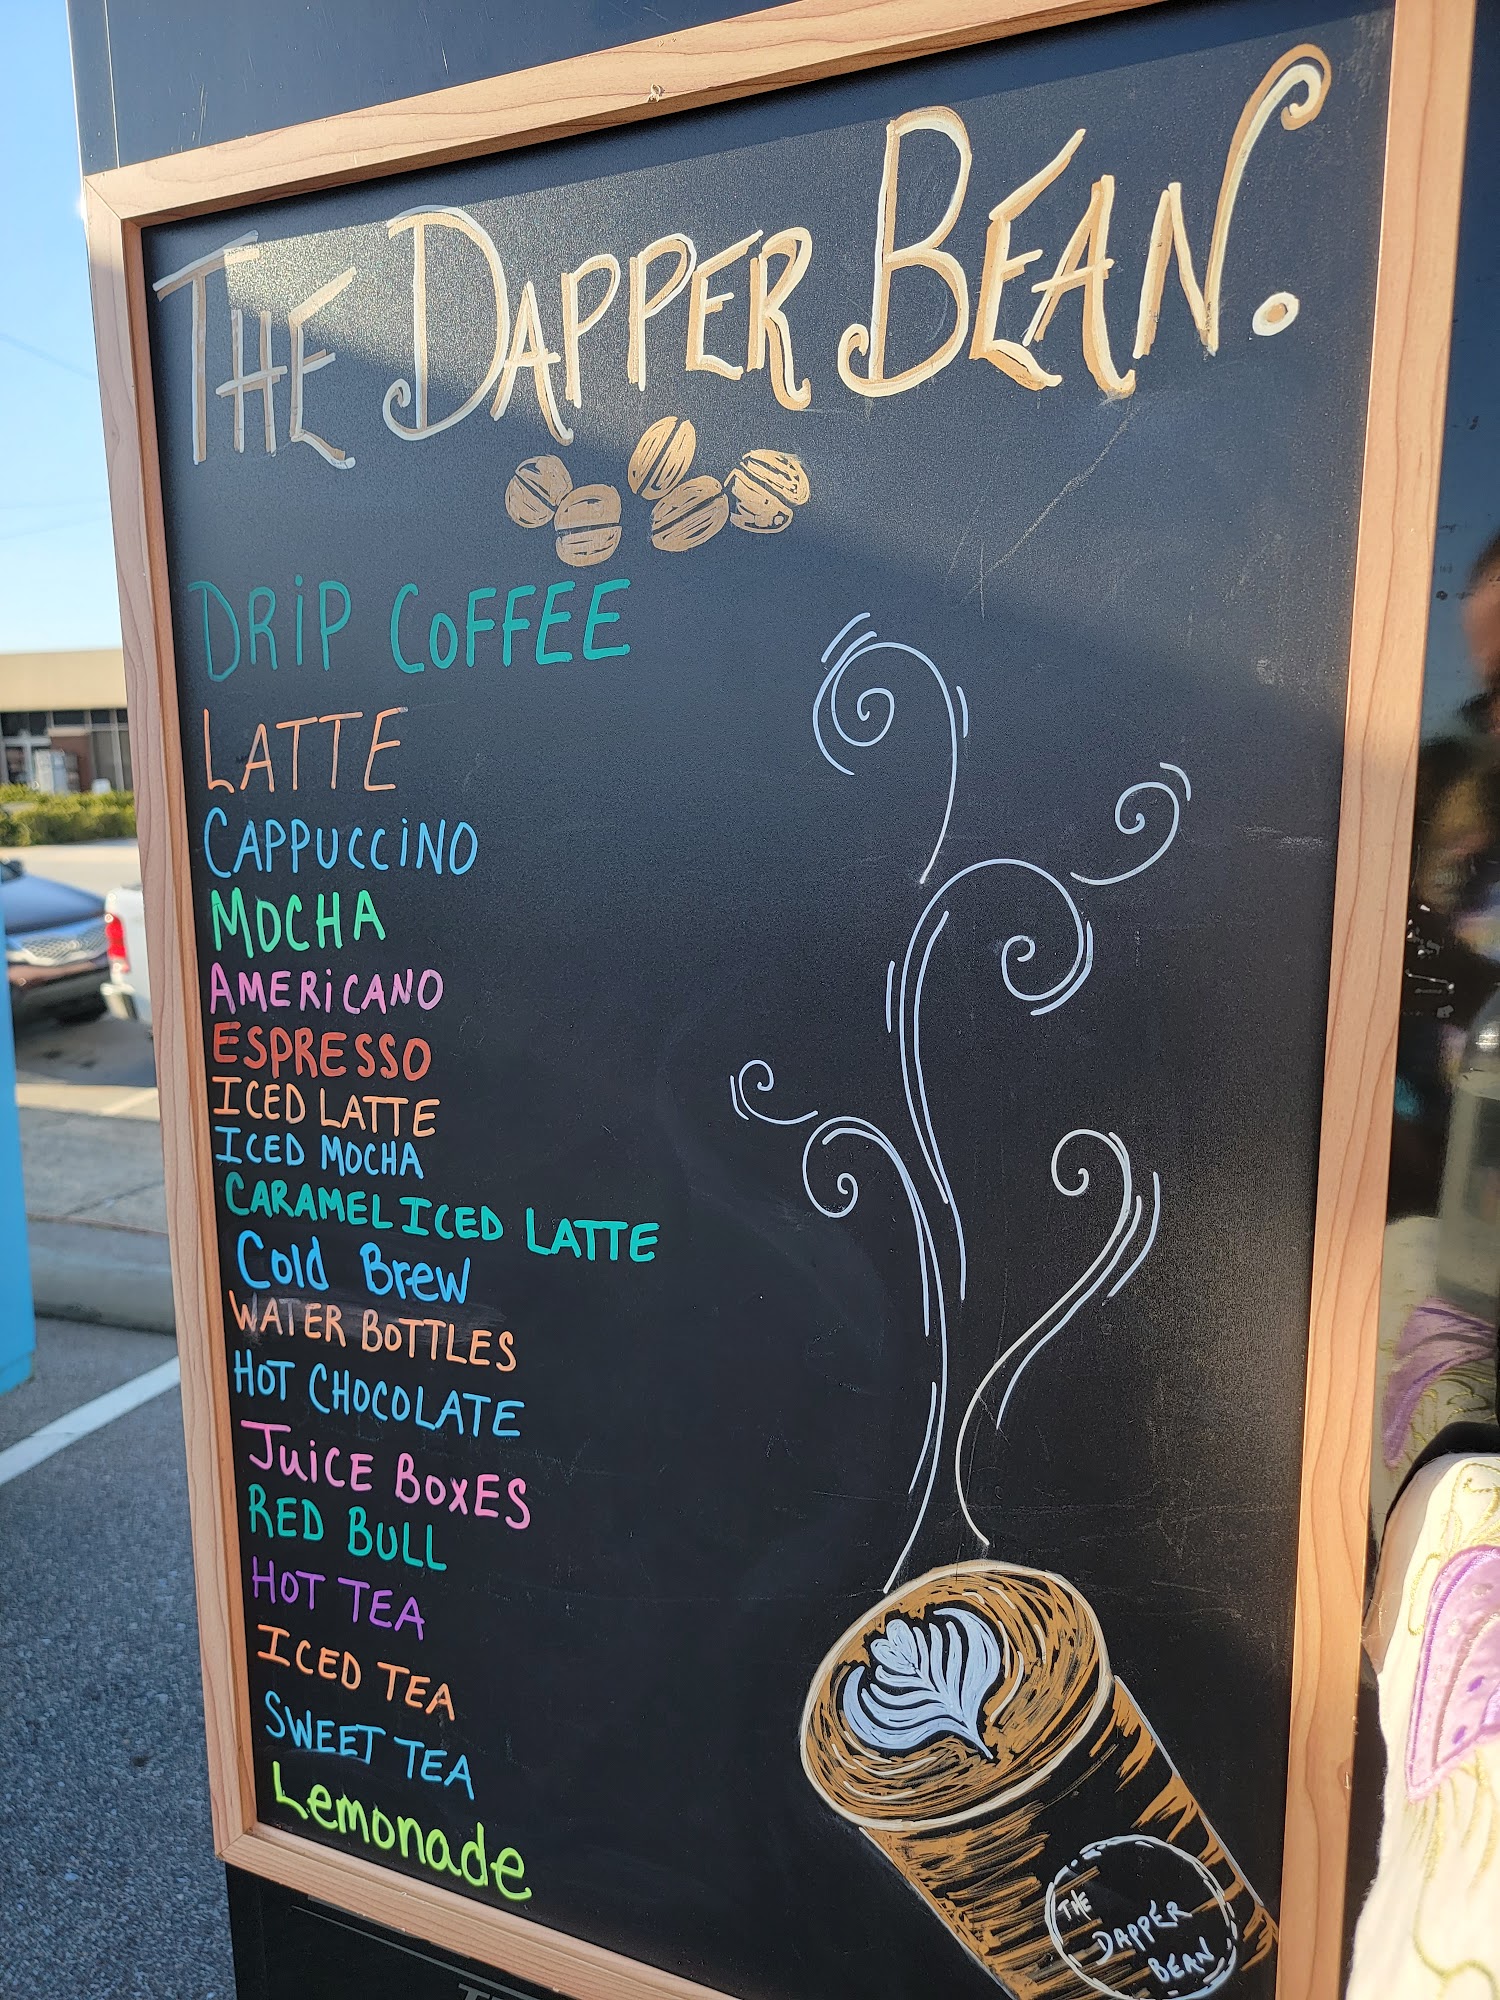 THE DAPPER BEAN.
DRIP COFFEE
LATTE
CAPPUCCINO
MOCHA
AMERICANO
ESPRESSO
ICED LATTE
ICED MOCHA
CARAMEL ICED LATTE
Cold Brew
WATER BOTTLES
HOT CHOCOLATE
JUICE BOXES
RED BULL
HOT TEA
ICED TEA
SWEET TEA
Lemonade
THE
DAPPER
BEAN